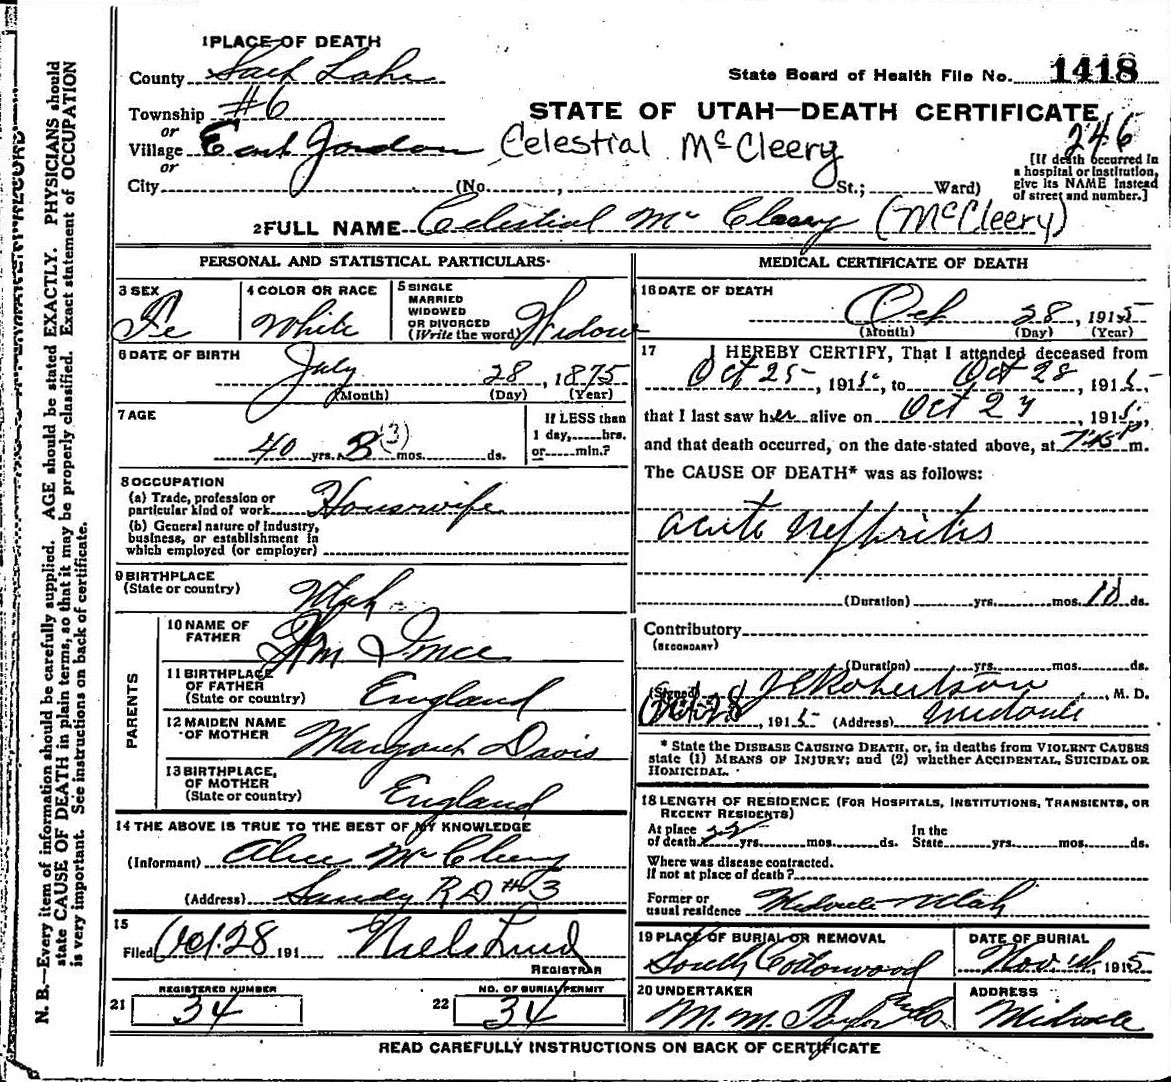 1 PLACE OF DEATH
County Salt Lake
State Board of Health File No. 1418
Township #6
or
Village East Jordan
or
City (No. , St.; Ward)
STATE OF UTAH—DEATH CERTIFICATE
Celestial McCleery
246
[If death occurred in
a hospital or institution,
give its NAME instead
of street and number.]
2 FULL NAME Celestial Mc Cleery (McCleery)
PERSONAL AND STATISTICAL PARTICULARS
3 SEX
Fe
4 COLOR OR RACE
White
5 SINGLE
MARRIED
WIDOWED
OR DIVORCED
(Write the word) Widow
6 DATE OF BIRTH
July 28, 1875
(Month) (Day) (Year)
7 AGE
40 yrs. 3 (3) mos. ds.
If LESS than
1 day, hrs.
or min.?
8 OCCUPATION
(a) Trade, profession or
particular kind of work Housewife
(b) General nature of Industry,
business, or establishment in
which employed (or employer)
9 BIRTHPLACE
(State or country) Utah
PARENTS
10 NAME OF
FATHER Wm Ince
11 BIRTHPLACE
OF FATHER
(State or country) England
12 MAIDEN NAME
OF MOTHER Margaret Davis
13 BIRTHPLACE,
OF MOTHER
(State or country) England
14 THE ABOVE IS TRUE TO THE BEST OF MY KNOWLEDGE
(Informant) Alice McCleery
(Address) Sandy R D #3
15
Filed Oct. 28 191 Niels Lind
REGISTRAR
21 REGISTERED NUMBER
34
22 NO. OF BURIAL PERMIT
34
MEDICAL CERTIFICATE OF DEATH
16 DATE OF DEATH
Oct 28, 1915
(Month) (Day) (Year)
17 I HEREBY CERTIFY, That I attended deceased from
Oct 25, 1915, to Oct 28, 1915,
that I last saw her alive on Oct 27, 1915
and that death occurred, on the date stated above, at P. m.
The CAUSE OF DEATH* was as follows:
acute nephritis
(Duration) yrs. mos. 10 ds.
Contributory
(SECONDARY)
(Duration) yrs. mos. ds.
(Signed) Robertson, M. D.
Oct 28, 1915 (Address) Midvale
* State the DISEASE CAUSING DEATH, or, in deaths from VIOLENT CAUSES
state (1) MEANS OF INJURY; and (2) whether ACCIDENTAL, SUICIDAL OR
HOMICIDAL.
18 LENGTH OF RESIDENCE (FOR HOSPITALS, INSTITUTIONS, TRANSIENTS, OR
RECENT RESIDENTS)
At place
of death 22 yrs. mos. ds.
In the
State yrs. mos. ds.
Where was disease contracted.
If not at place of death?
Former or
usual residence Midvale Utah
19 PLACE OF BURIAL OR REMOVAL
South Cottonwood
DATE OF BURIAL
Nov 1st, 1915
20 UNDERTAKER
M. M. Taylor & Co
ADDRESS
Midvale
READ CAREFULLY INSTRUCTIONS ON BACK OF CERTIFICATE
N. B.—Every item of information should be carefully supplied. AGE should be stated EXACTLY. PHYSICIANS should
state CAUSE OF DEATH in plain terms, so that it may be properly classified. Exact statement of OCCUPATION
is very important. See instructions on back of certificate.